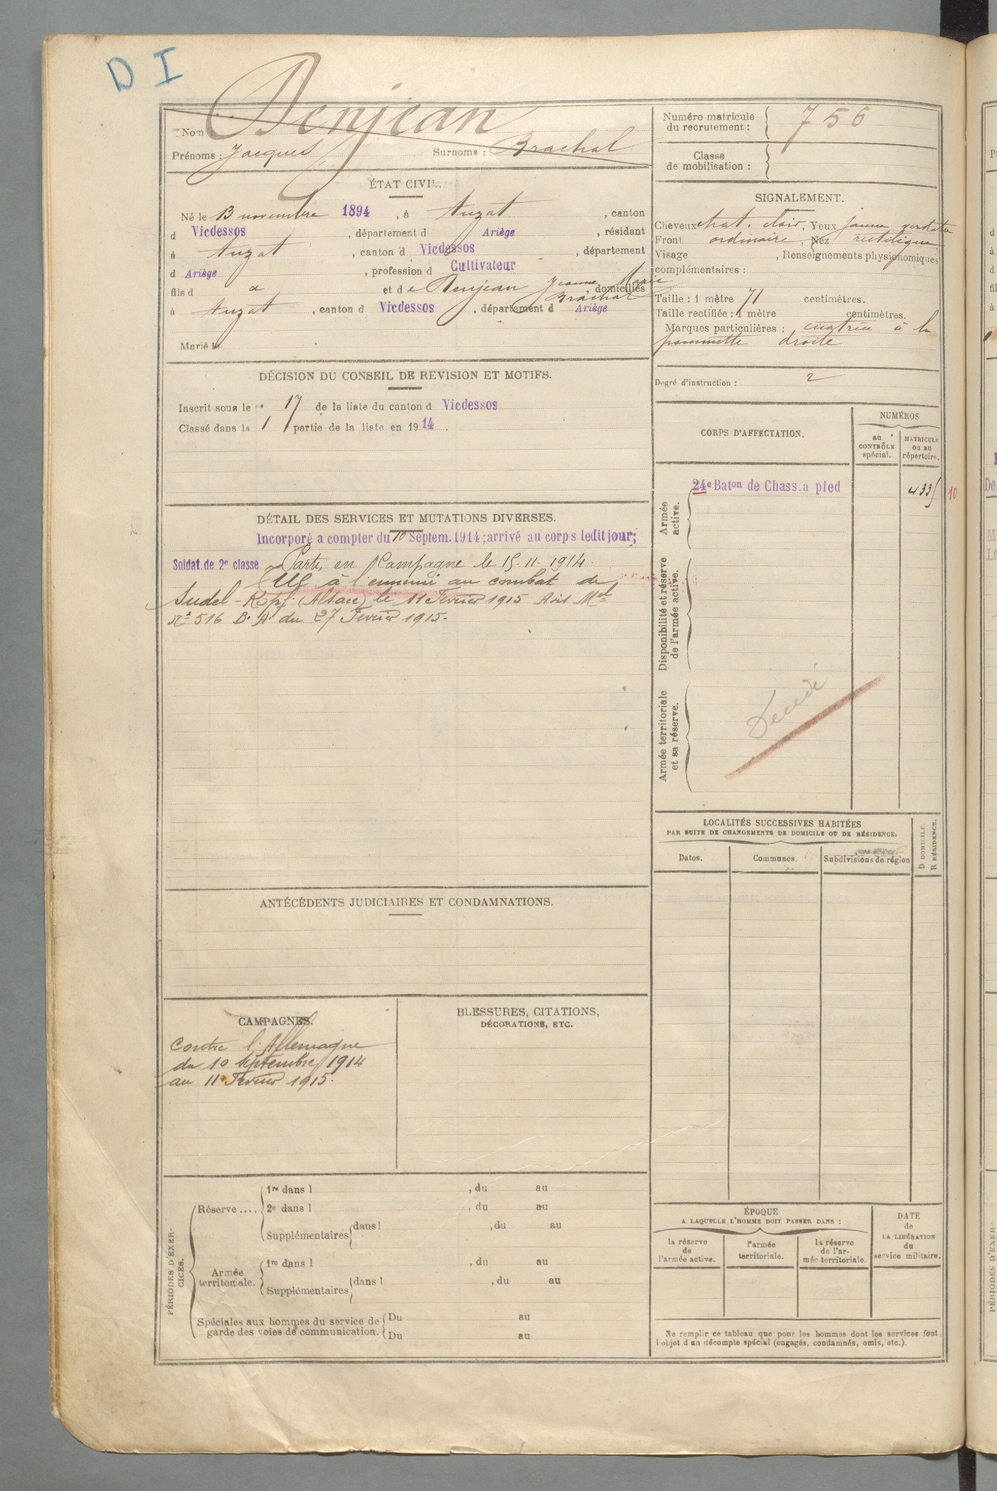 D I
Denjean
Nom :
Prénoms : Jacques Surnoms : Brachal
Numéro matricule
du recrutement : 756
Classe
de mobilisation :
ÉTAT CIVIL.
Né le 13 novembre 1894, à Auzat, canton
d Vicdessos, département d Ariège, résidant
à Auzat, canton d Vicdessos, département
d Ariège, profession d Cultivateur
fils d a et de Denjean Jeanne Marie, domiciliés
Brachal
à Auzat, canton d Vicdessos, département d Ariège
Marié le
SIGNALEMENT.
Cheveux chat. clair, Yeux jaune verdatre
Front ordinaire, Nez rectiligne
Visage , Renseignements physionomiques
complémentaires :
Taille : 1 mètre 71 centimètres.
Taille rectifiée : 1 mètre centimètres.
Marques particulières : cicatrice à la
pommette droite
Degré d'instruction : 2
DÉCISION DU CONSEIL DE REVISION ET MOTIFS.
Inscrit sous le n° 17 de la liste du canton d Vicdessos
Classé dans la 1 partie de la liste en 1914.
DÉTAIL DES SERVICES ET MUTATIONS DIVERSES.
Incorporé a compter du 10 Septem. 1914; arrivé au corps ledit jour;
Soldat de 2e classe Parti en Campagne le 15-11-1914.
Tué à l'ennemi au combat de
Sudel-Kopf (Alsace) le 11 Février 1915 Avis Mel
N° 516 D. A. du 27 Février 1915.
CORPS D'AFFECTATION.
NUMÉROS
au
CONTRÔLE
spécial.
MATRICULE
OU AU
répertoire.
Armée
active.
24e Baton de Chass. a pied 4335
10
Disponibilité et réserve
de l'armée active.
Armée territoriale
et sa réserve.
Décédé
LOCALITÉS SUCCESSIVES HABITÉES
PAR SUITE DE CHANGEMENTS DE DOMICILE OU DE RÉSIDENCE.
Dates.
Communes.
Subdivisions de région
D. DOMICILE.
R. RÉSIDENCE.
ANTÉCÉDENTS JUDICIAIRES ET CONDAMNATIONS.
CAMPAGNES.
Contre l'Allemagne
du 10 Septembre 1914
au 11 Février 1915.
BLESSURES, CITATIONS,
DÉCORATIONS, ETC.
PÉRIODES D'EXER-
CICES.
Réserve ....
1re dans l , du au
2e dans l , du au
Supplémentaires dans l , du au
Armée
territoriale.
1re dans l , du au
Supplémentaires dans l , du au
Spéciales aux hommes du service de
garde des voies de communication.
Du au
Du au
ÉPOQUE
A LAQUELLE L'HOMME DOIT PASSER DANS :
la réserve
de
l'armée active.
l'armée
territoriale.
la réserve
de l'ar-
mée territoriale.
DATE
de
LA LIBÉRATION
du
service militaire.
Ne remplir ce tableau que pour les hommes dont les services font
l'objet d'un décompte spécial (engagés, condamnés, omis, etc.).